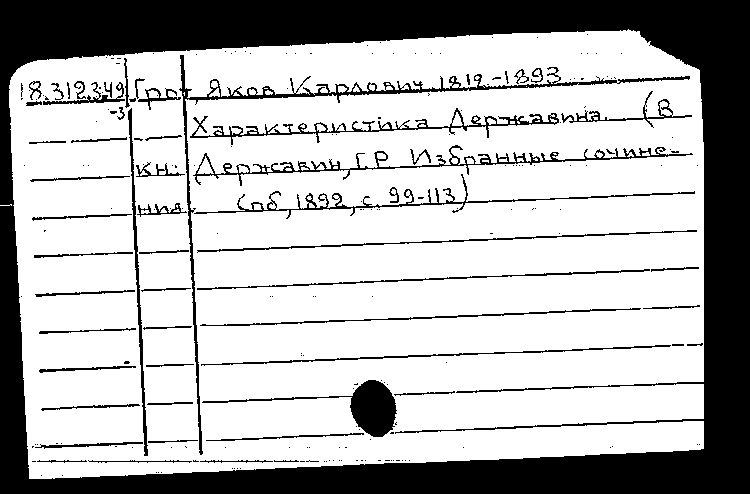 18.312.349 Грот, Яков Карлович, 1812-1893
-3
Характеристика Державина. (В
кн.: Державин, Г.Р. Избранные сочине-
ния. Спб, 1892, с. 99-113)